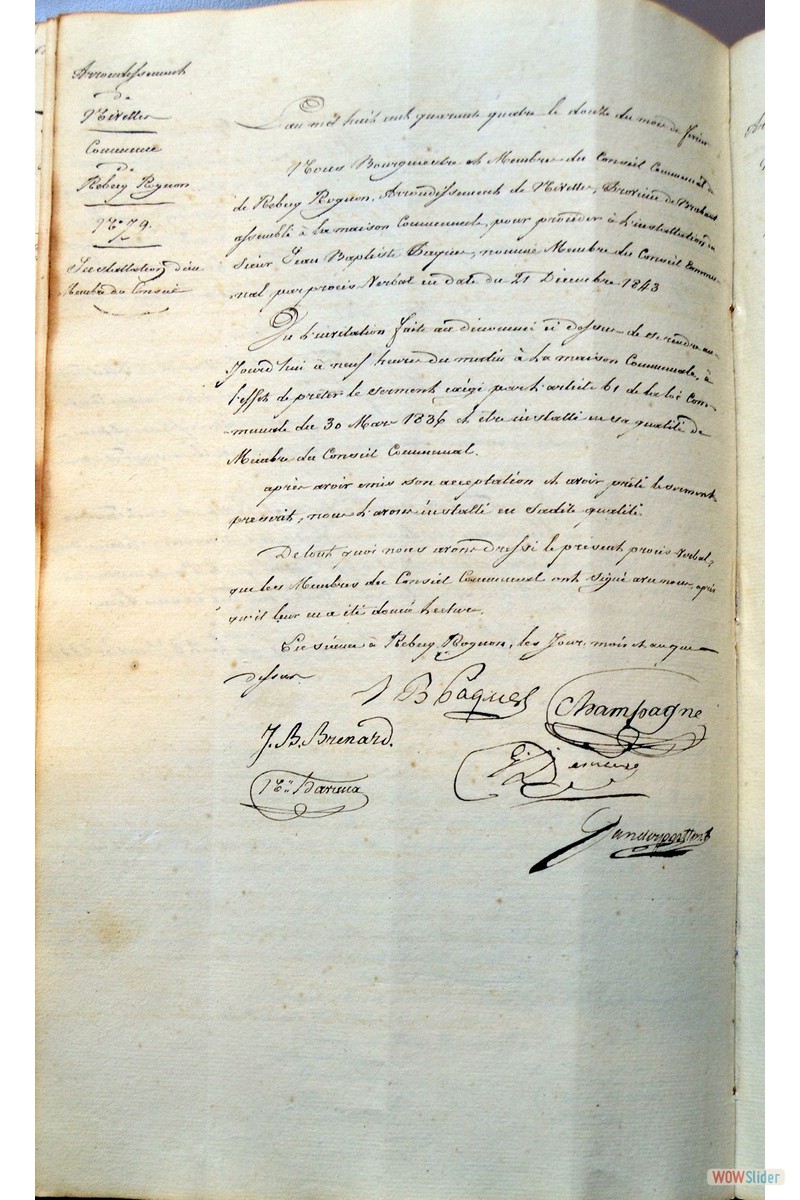 Arrondissement
de
Nivelles
Commune
de
Rebecq Rognon
N° 79.
Installation d'un
Membre du Conseil
L'an mil huit cent quarante quatre le douze du mois de février
Nous Bourgmestre et Membres du Conseil Communal
de Rebecq Rognon, Arrondissement de Nivelles, Province de Brabant
assemblé à la maison Communale, pour procéder à l'installation du
Sieur Jean Baptiste Paquet, nommé Membre du Conseil Commu-
nal par procès Verbal en date du 21 Décembre 1843
Vu l'invitation faite au dénommé ci dessus de se rendre au-
jourd'hui à neuf heures du matin à la maison Communale, à
l'effet de prêter le serment exigé par l'article 61 de la loi Com-
-munale du 30 Mars 1836 et être installé en sa qualité de
Membre du Conseil Communal.
après avoir émis son acceptation et avoir prêté le serment
prescrit, nous l'avons installé en sadite qualité
De tout quoi nous avons dressé le présent procès-verbal,
que les Membres du Conseil Communal ont signé avec nous, après
qu'il leur en a été donné lecture.
En séance à Rebecq Rognon, les Jour, mois et an que
dessus.
J B Paquet
Champagne
J. B. Brenard.